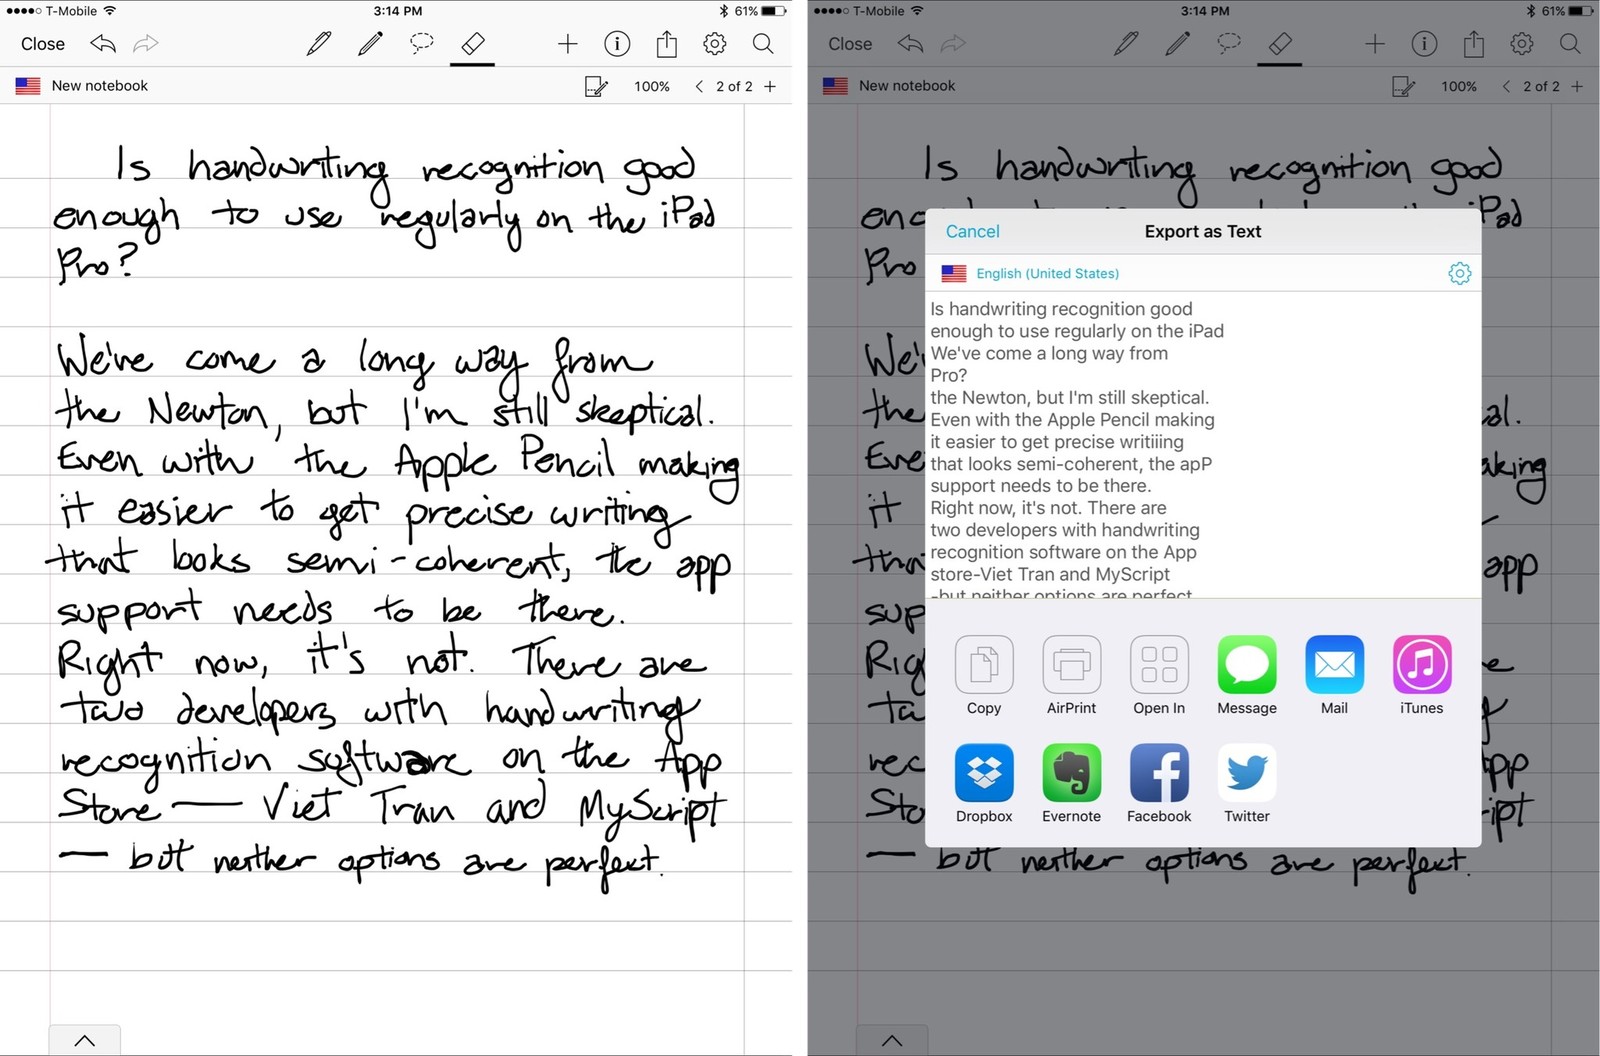 T-Mobile 3:14 PM 61%
Close
New notebook 100% 2 of 2
Is handwriting recognition good
enough to use regularly on the iPad
Pro?
We've come a long way from
the Newton, but I'm still skeptical.
Even with the Apple Pencil making
it easier to get precise writing
that looks semi-coherent, the app
support needs to be there.
Right now, it's not. There are
two developers with handwriting
recognition software on the App
Store — Viet Tran and MyScript
— but neither options are perfect.
T-Mobile 3:14 PM 61%
Close
New notebook 100% 2 of 2
Is handwriting recognition good
iPad
Pro
al.
aking
it
app
App
— but neither options are perfect.
Cancel Export as Text
English (United States)
Is handwriting recognition good
enough to use regularly on the iPad
We've come a long way from
Pro?
the Newton, but I'm still skeptical.
Even with the Apple Pencil making
it easier to get precise writiiing
that looks semi-coherent, the apP
support needs to be there.
Right now, it's not. There are
two developers with handwriting
recognition software on the App
store-Viet Tran and MyScript
-but neither options are perfect
Copy AirPrint Open In Message Mail iTunes
Dropbox Evernote Facebook Twitter